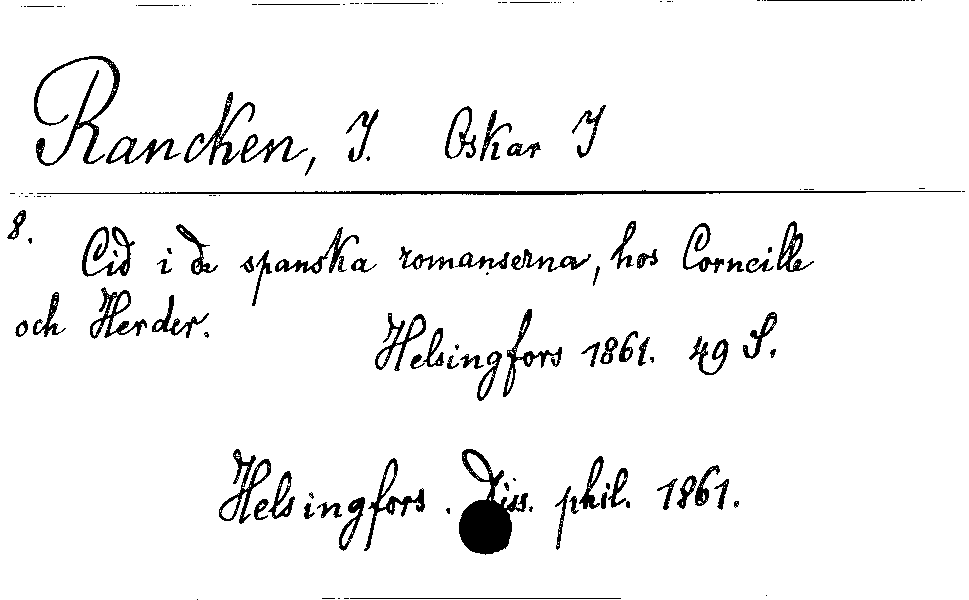 Rancken, J. Oskar J
8.
Cid i de spanska romanserna, hos Corneille
och Herder.
Helsingfors 1861. 49 S.
Helsingfors. Diss. phil. 1861.